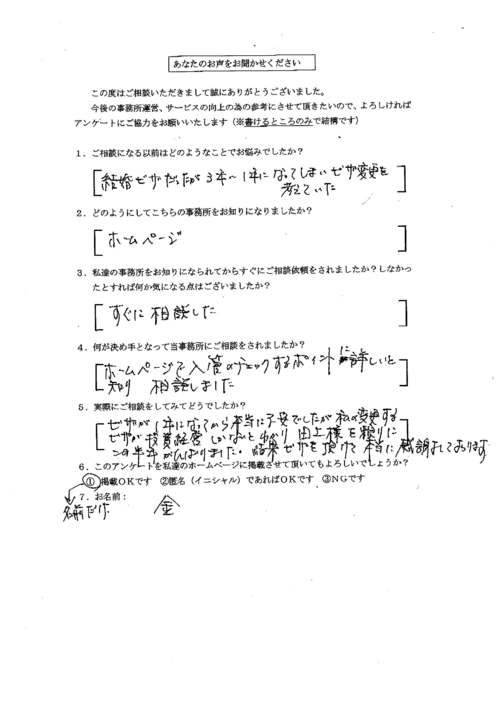 あなたのお声をお聞かせください
この度はご相談いただきまして誠にありがとうございました。
今後の事務所運営、サービスの向上の為の参考にさせて頂きたいので、よろしければ
アンケートにご協力をお願いいたします（※書けるところのみで結構です）
1．ご相談になる以前はどのようなことでお悩みでしたか？
結婚ビザだったが3年〜1年になってしまいビザ変更を
考えていた
2．どのようにしてこちらの事務所をお知りになりましたか？
ホームページ
3．私達の事務所をお知りになられてからすぐにご相談依頼をされましたか？しなかっ
たとすれば何か気になる点はございましたか？
すぐに相談した
4．何が決め手となって当事務所にご相談をされましたか？
ホームページで入管のチェックするポイントに詳しいと
知り 相談しました
5．実際にご相談をしてみてどうでしたか？
ビザが1年になってから本当に不安でしたが私の変更する
ビザが投資経営しかないと分かり 田上様を頼りに
この半年がんばりました。結果ビザを頂けて本当に感謝しております
6．このアンケートを私達のホームページに掲載させて頂いてもよろしいでしょうか？
①掲載OKです ②匿名（イニシャル）であればOKです ③NGです
7．お名前：
名前だけ 金